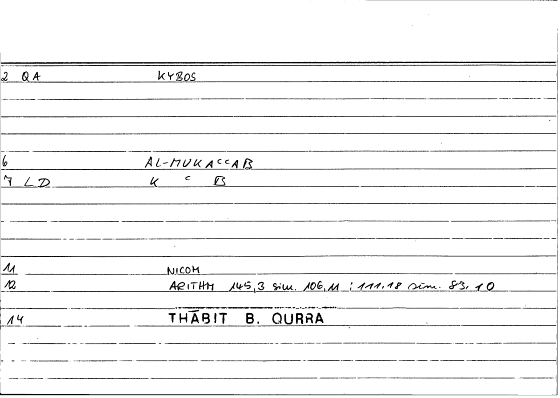 2 QA KYBOS
6 AL-MUKAᶜᶜAB
7 LD K ᶜ B
11 NICOM
12 ARITHM 145,3 sim. 106,11 ; 111,18 sim. 83,10
14 THĀBIT B. QURRA